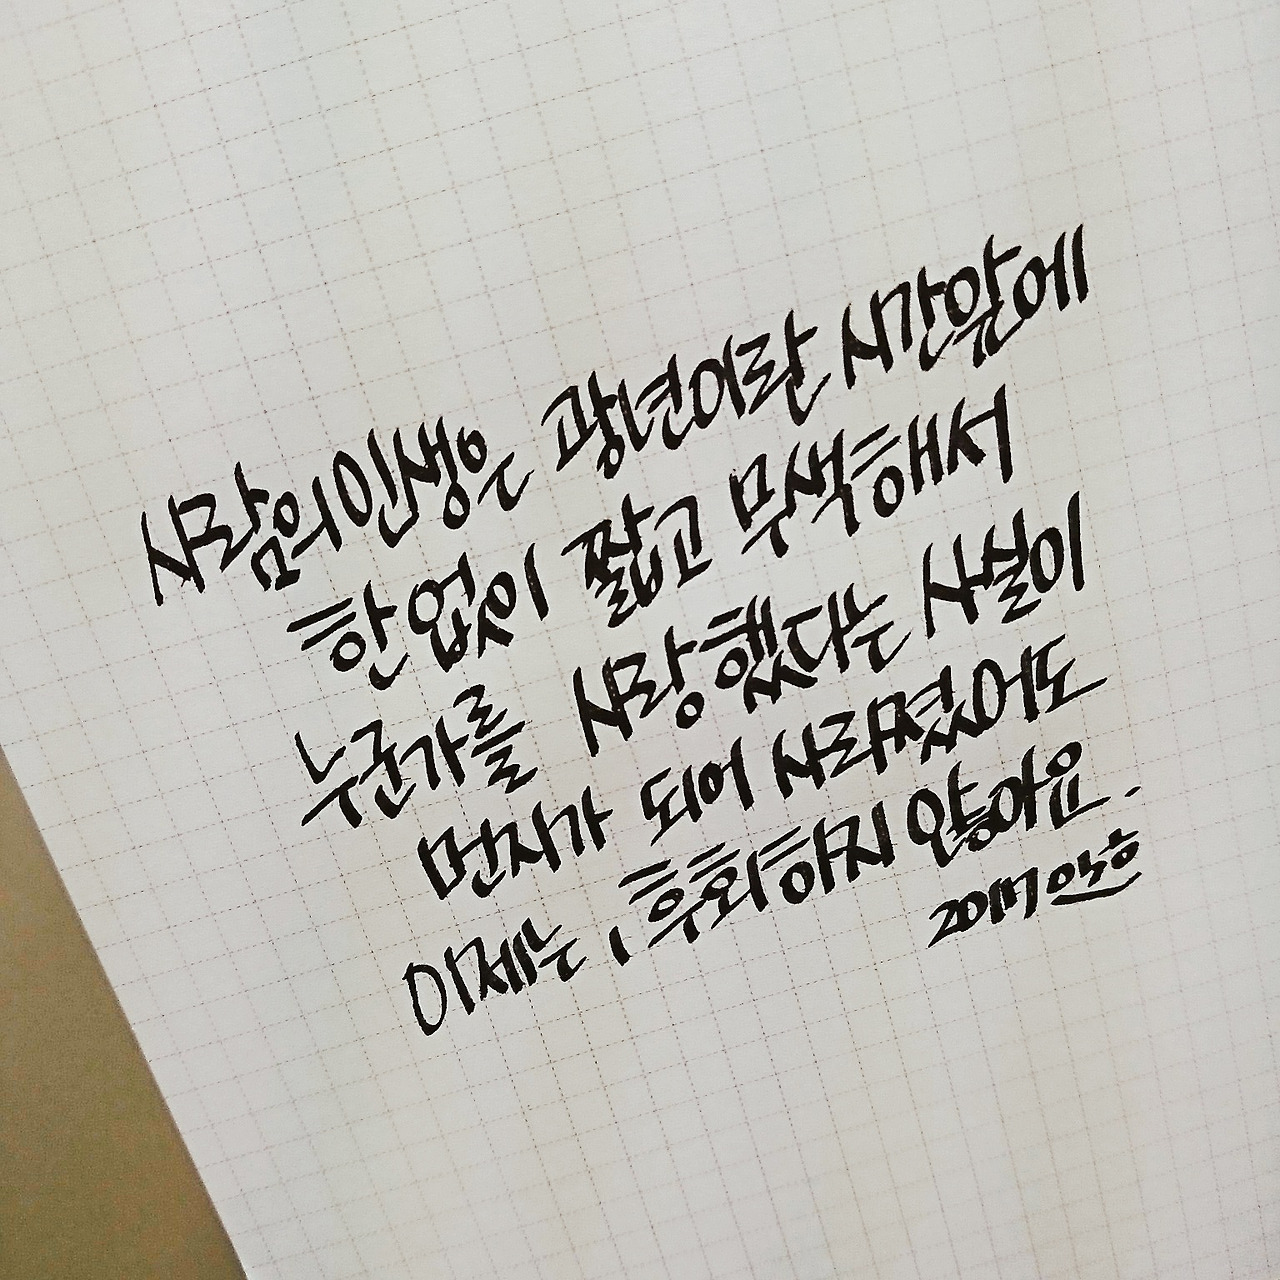 사람의 인생은 광년이란 시간앞에
한없이 짧고 무색해서
누군가를 사랑했다는 사실이
먼지가 되어 사라졌어도
이제는, 후회하지 않아요.
2017